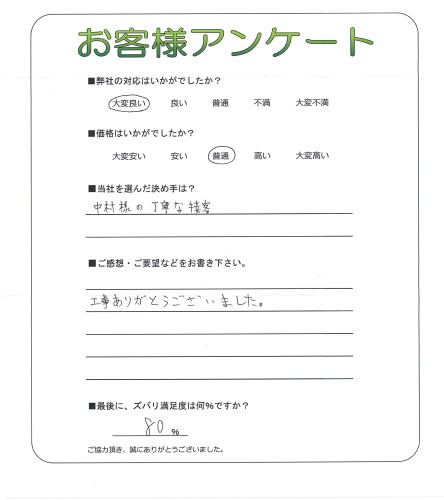 お客様アンケート
■弊社の対応はいかがでしたか？
大変良い 良い 普通 不満 大変不満
■価格はいかがでしたか？
大変安い 安い 普通 高い 大変高い
■当社を選んだ決め手は？
中村様の丁寧な接客
■ご感想・ご要望などをお書き下さい。
工事ありがとうございました。
■最後に、ズバリ満足度は何%ですか？
80 %
ご協力頂き、誠にありがとうございました。